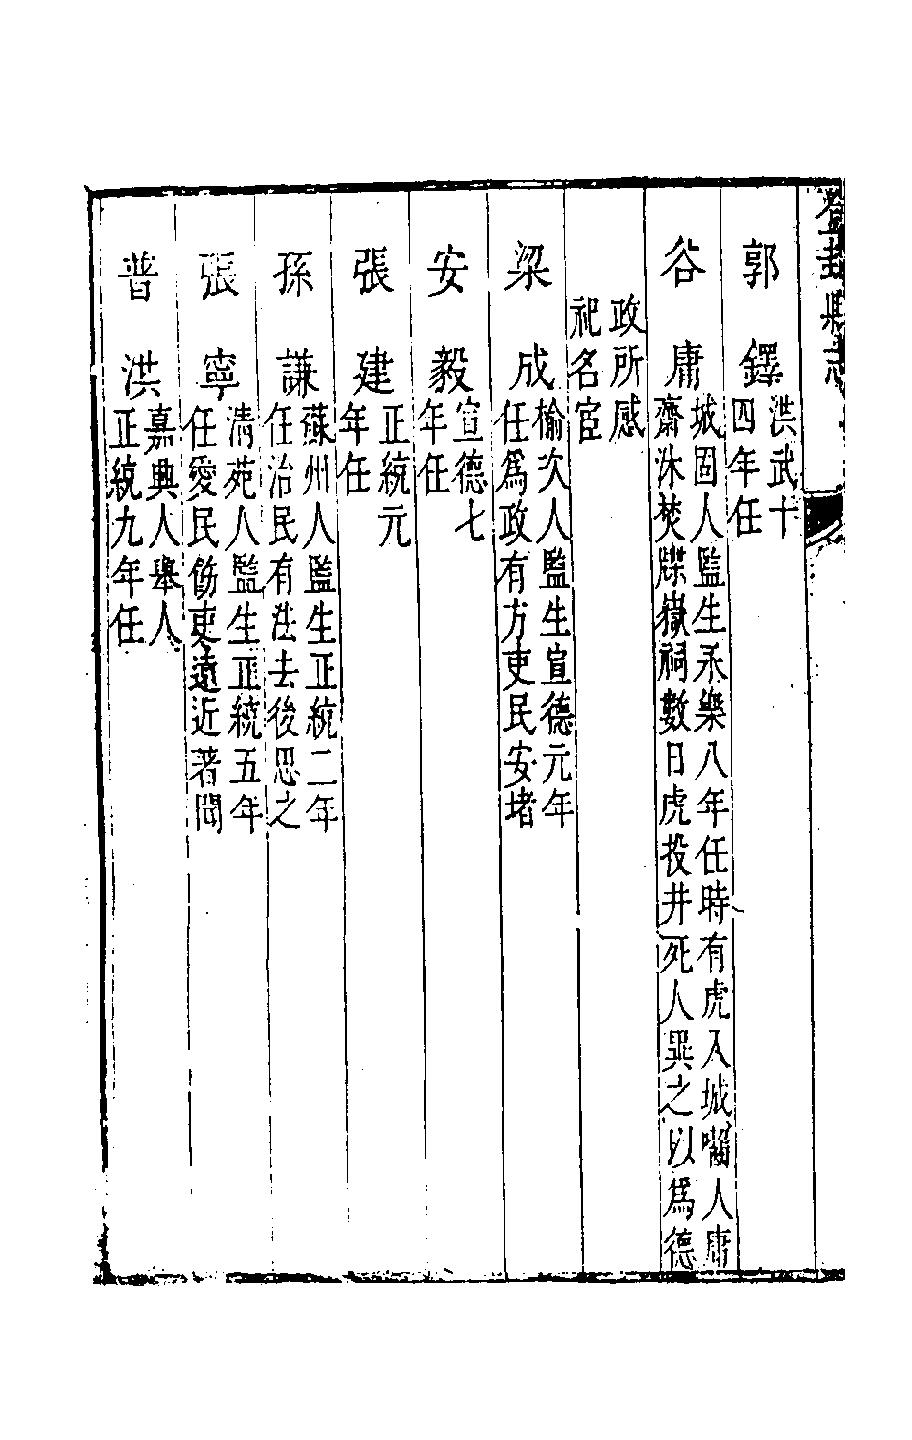 登封縣志
郭鐸
洪武十
四年任
谷庸
城固人監生永樂八年任時有虎入城囓人庸
齋沐焚牒嶽祠數日虎投井死人異之以爲德
政所感
祀名宦
梁成
榆次人監生宣德元年
任爲政有方吏民安堵
安毅
宣德七
年任
張建
正統元
年任
孫謙
蘇州人監生正統二年
任治民有法去後思之
張寧
清苑人監生正統五年
任愛民飭吏遠近著聞
普洪
嘉興人舉人
正統九年任